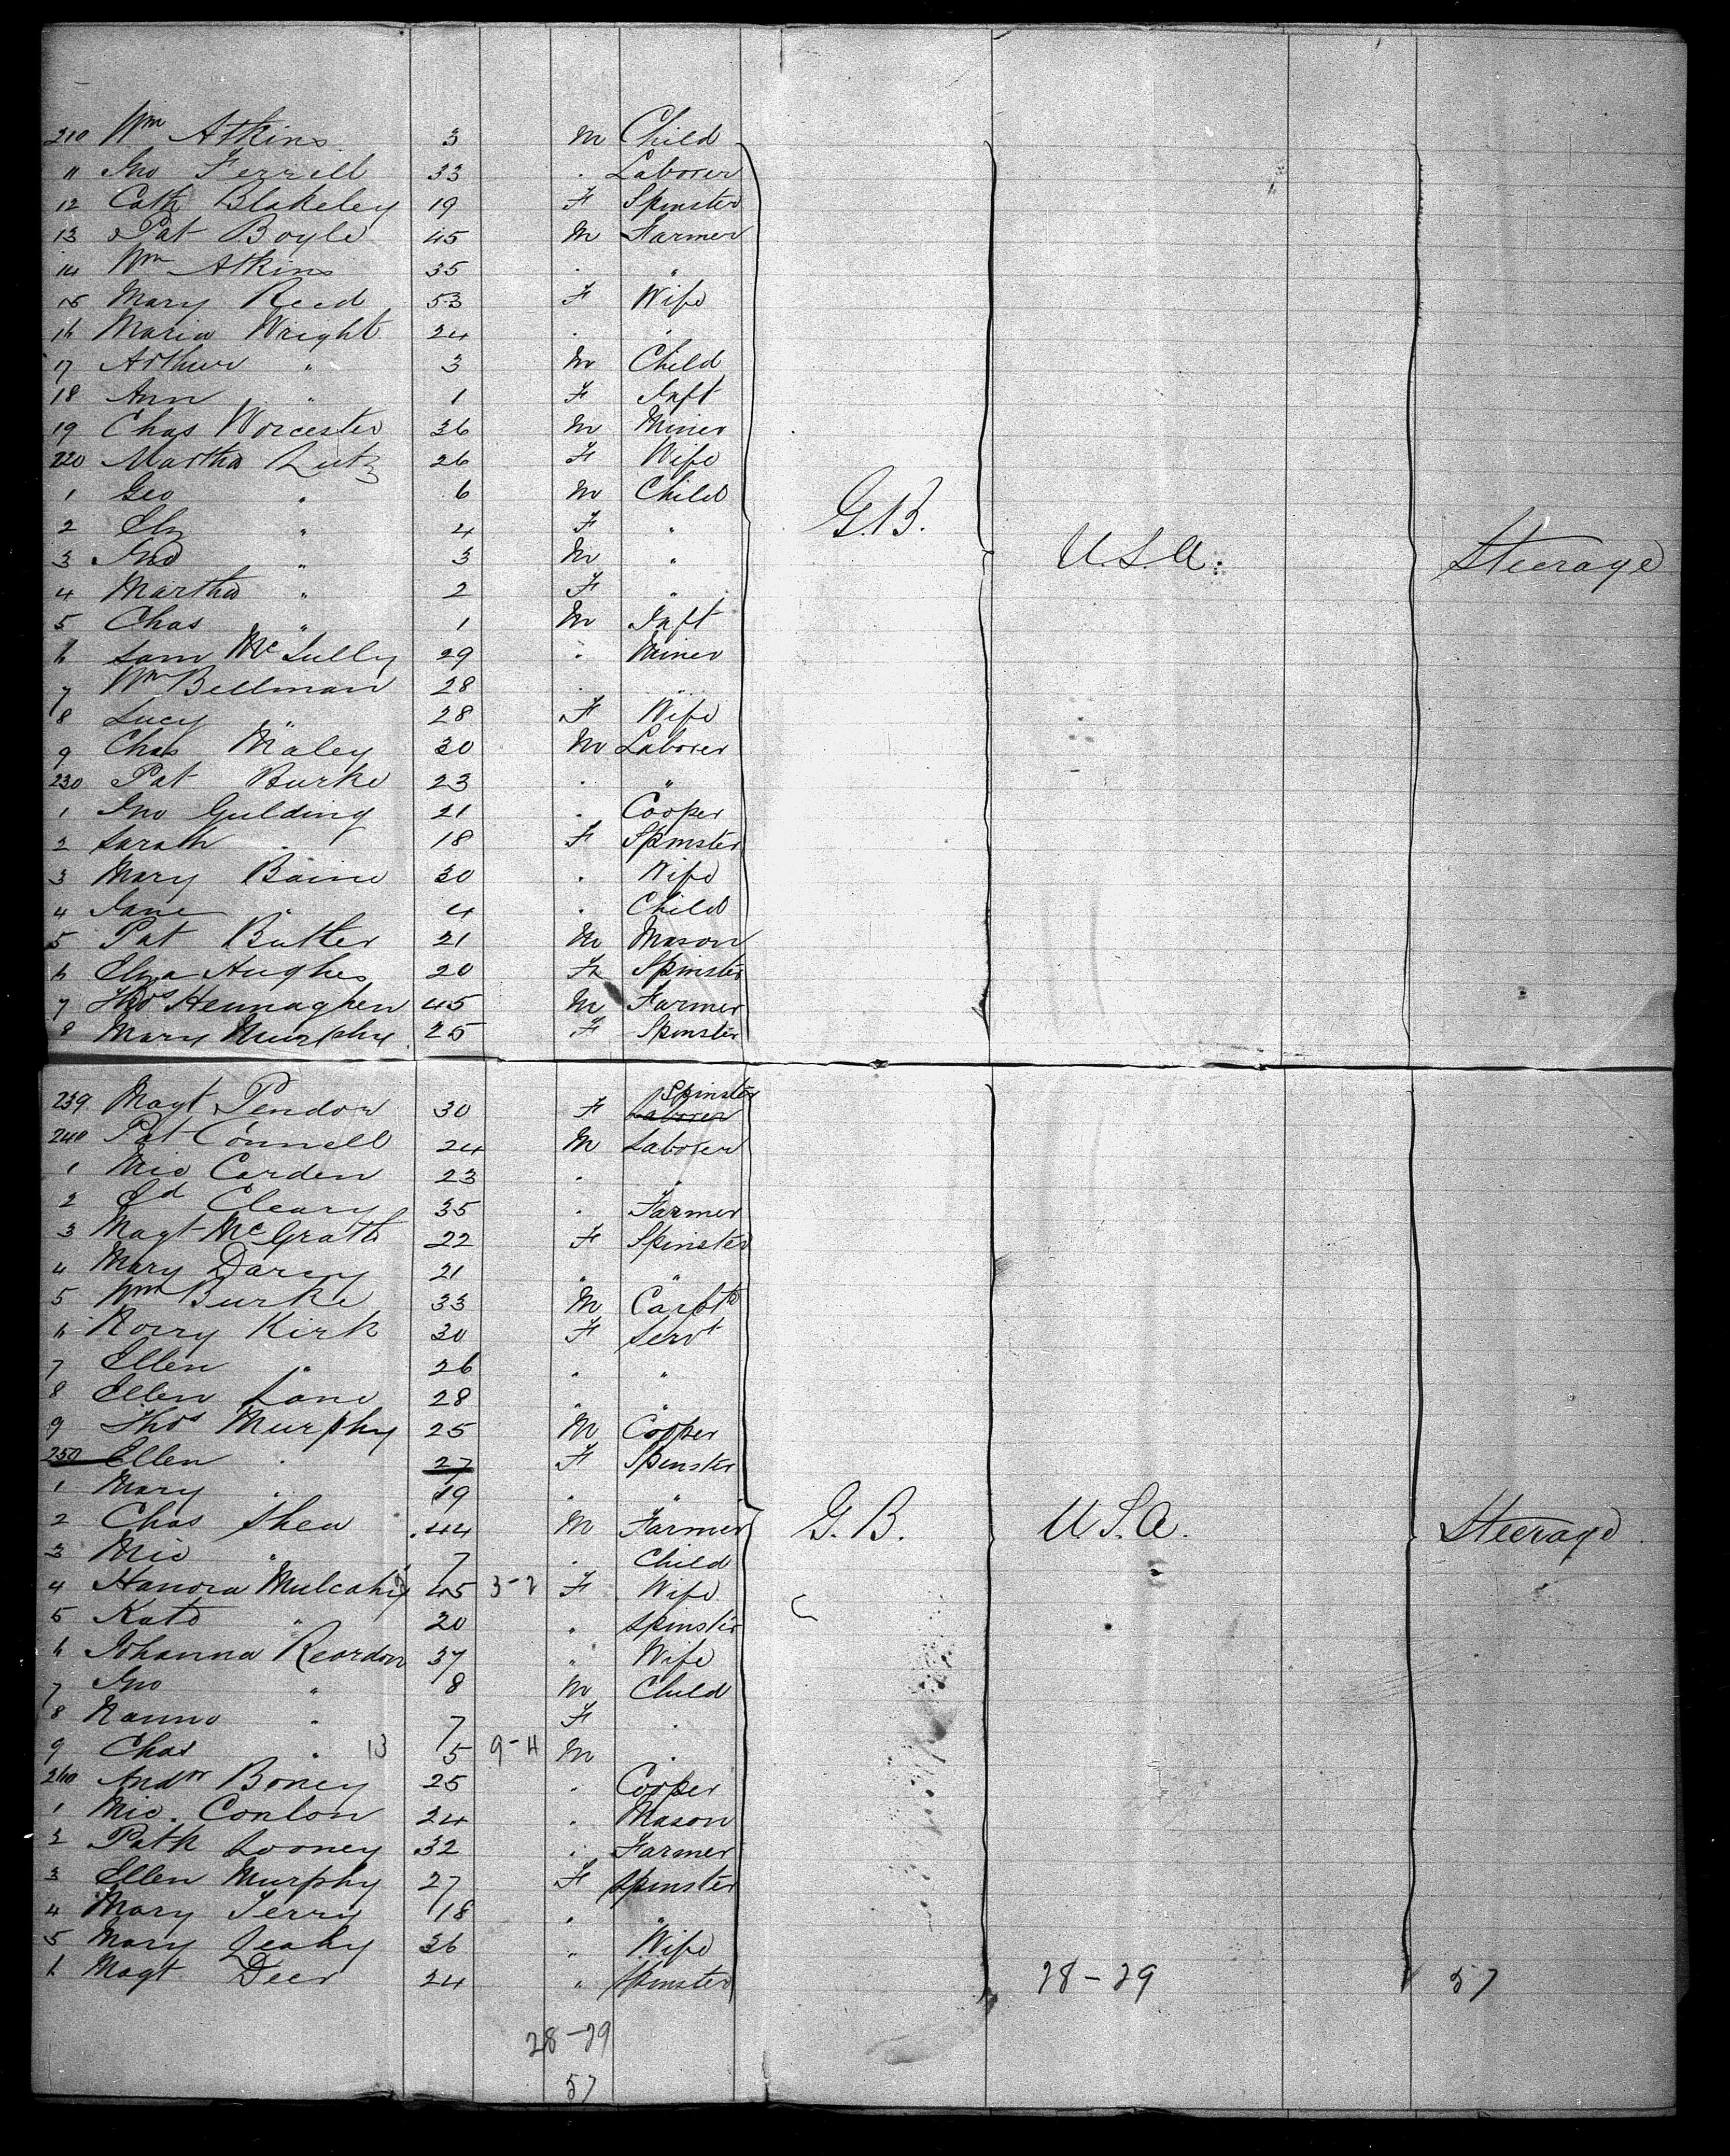 210 Wm Atkins 3 M Child
11 Jno Ferrell 33 . Laborer
12 Cath Blakeley 19 F Spinster
13 Pat Boyle 45 M Farmer
14 Wm Atkins 35 . "
15 Mary Reed 53 F Wife
16 Maria Wright 24 . "
17 Arthur " 3 M Child
18 Ann " 1 F Inft
19 Chas Worcester 36 M Miner
220 Martha Lutz 26 F Wife
1 Geo " 6 M Child
2 Eliz " 4 F "
3 Jno " 3 M "
4 Martha " 2 F "
5 Chas " 1 M Inft
6 Sam McLully 29 . Miner
7 Wm Bellman 28 . "
8 Lucy " 28 F Wife
9 Chas Maley 30 M Laborer
230 Pat Burke 23 . "
1 Jno Gulding 21 . Cooper
2 Sarah " 18 F Spinster
3 Mary Baine 30 . Wife
4 Jane " 4 . Child
5 Pat Butler 21 M Mason
6 Eliza Hughes 20 F Spinster
7 Thos Hennaghen 45 M Farmer
8 Mary Murphy 25 F Spinster
G.B. U.S.A. Steerage
239 Magt Pendor 30 F Laborer Spinster
240 Pat Connell 24 M Laborer
1 Mic Carden 23 . "
2 Ed Cleary 35 . Farmer
3 Magt McGrath 22 F Spinster
4 Mary Darcy 21 " "
5 Wm Burke 33 M Carptr
6 Norry Kirk 30 F Servt
7 Ellen " 26 " "
8 Ellen Lane 28 " "
9 Thos Murphy 25 M Cooper
250 Ellen " 27 F Spinster
1 Mary " 19 " "
2 Chas Shea 44 M Farmer
3 Mic " 7 . Child
4 Hanora Mulcahy 45 3-2 F Wife
5 Kate " 20 " Spinster
6 Johanna Reardon 37 " Wife
7 Jno " 8 M Child
8 Nanno " 7 F .
9 Chas " 13 5 9-4 M .
260 Andw Boney 25 . Cooper
1 Mic. Conlon 24 . Mason
2 Patk Looney 32 . Farmer
3 Ellen Murphy 27 F Spinster
4 Mary Terry 18 " "
5 Mary Leahy 36 " Wife
6 Magt Deer 24 " Spinster
G.B. U.S.A. Steerage
28-29 57
28-29
57